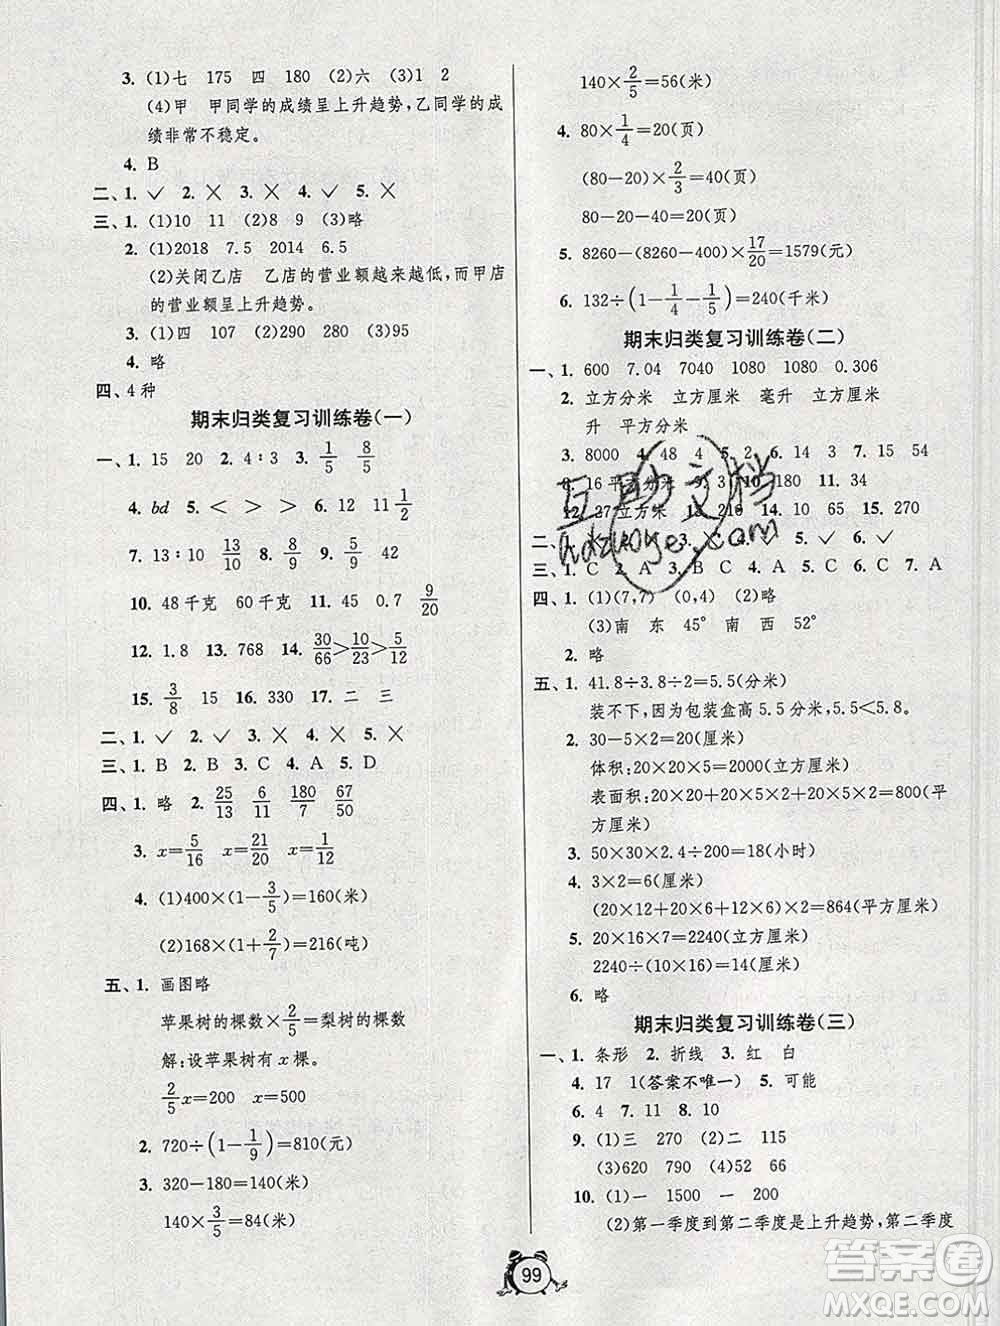 3. (1)七 175 四 180 (2)六 (3)1 2
(4)甲 甲同学的成绩呈上升趋势,乙同学的成
绩非常不稳定。
4. B
二、1. ✓ 2. ✕ 3. ✕ 4. ✓ 5. ✕
三、1. (1)10 11 (2)8 9 (3)略
2. (1)2018 7.5 2014 6.5
(2)关闭乙店 乙店的营业额越来越低,而甲店
的营业额呈上升趋势。
3. (1)四 107 (2)290 280 (3)95
4. 略
四、4种
期末归类复习训练卷(一)
一、1. 15 20 2. 4∶3 3. 1/5 8/5
4. bd 5. < > > 6. 12 11 1/2
7. 13∶10 13/10 8. 8/9 9. 5/9
10. 48千克 60千克 11. 45 0.7 9/20
12. 1.8 13. 768 14. 30/66>10/23>5/12
15. 3/8 15 16. 330 17. 二 三
二、1. ✓ 2. ✓ 3. ✕ 4. ✕ 5. ✕
三、1. B 2. B 3. C 4. A 5. D
四、1. 略 2. 25/13 6/11 180/7 67/50
3. x=5/16 x=21/20 x=1/12
4. (1)400×(1-3/5)=160(米)
(2)168×(1+2/7)=216(吨)
五、1. 画图略
苹果树的棵数×2/5=梨树的棵数
解:设苹果树有x棵。
2/5x=200 x=500
2. 720÷(1-1/9)=810(元)
3. 320-180=140(米)
140×3/5=84(米)
140×2/5=56(米)
4. 80×1/4=20(页)
(80-20)×2/3=40(页)
80-20-40=20(页)
5. 8260-(8260-400)×17/20=1579(元)
6. 132÷(1-1/4-1/5)=240(千米)
期末归类复习训练卷(二)
一、1. 600 7.04 7040 1080 1080 0.306
2. 立方分米 立方厘米 毫升 立方米
升 平方分米
3. 8000 4. 48 4 5. 2 6. 14 3 7. 15 54
8. 16平方分米 9. 3 10. 180 11. 34
12. 27立方分米 13. 216 14. 10 65 15. 270
二、1. 3. 4. 5. ✓ 6. ✓
三、1. C 2. A 3. B 4. A 5. C 6. C 7. A
四、1. (1)(7,7) (0,4) (2)略
(3)南 东 45° 南 西 52°
2. 略
五、1. 41.8÷3.8÷2=5.5(分米)
装不下,因为包装盒高5.5分米,5.5<5.8。
2. 30-5×2=20(厘米)
体积:20×20×5=2000(立方厘米)
表面积:20×20+20×5×2+20×5×2=800(平
方厘米)
3. 50×30×2.4÷200=18(小时)
4. 3×2=6(厘米)
(20×12+20×6+12×6)×2=864(平方厘米)
5. 20×16×7=2240(立方厘米)
2240÷(10×16)=14(厘米)
6. 略
期末归类复习训练卷(三)
一、1. 条形 2. 折线 3. 红 白
4. 17 1(答案不唯一) 5. 可能
6. 4 7. 11 8. 10
9. (1)三 270 (2)二 115
(3)620 790 (4)52 66
10. (1)一 1500 一 200
(2)第一季度到第二季度是上升趋势,第二季度
99
互助文档
hdzuoye.com
答案圈
MXQE.COM